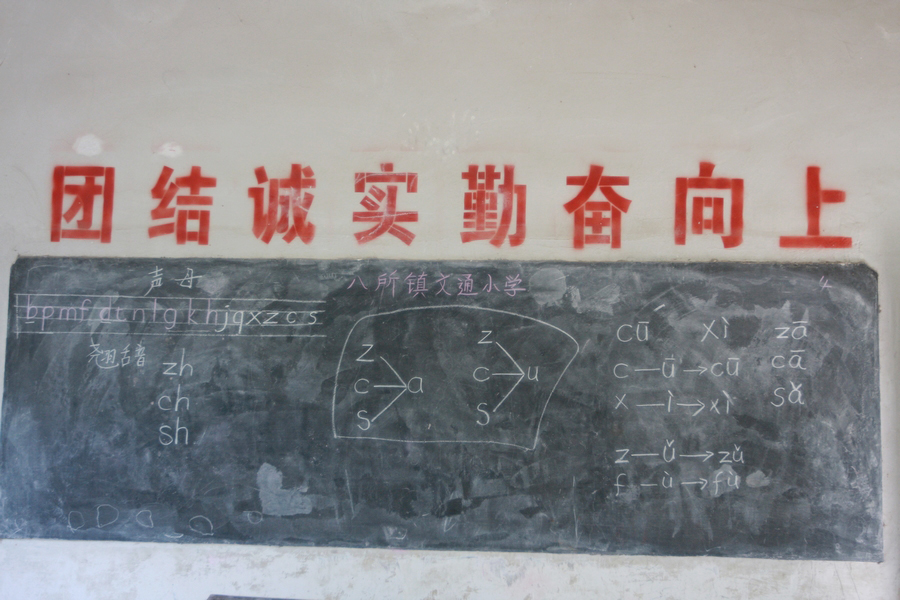 团结诚实勤奋向上
声母
bpmfdtnlgkhjqxzcs
翘舌音
zh
ch
sh
八所镇文通小学
z
c
s
a
z
c
s
u
cū xì
c—ū→cū
x—ì→xì
z—ǔ→zǔ
f—ù→fù
zā
cā
sǎ